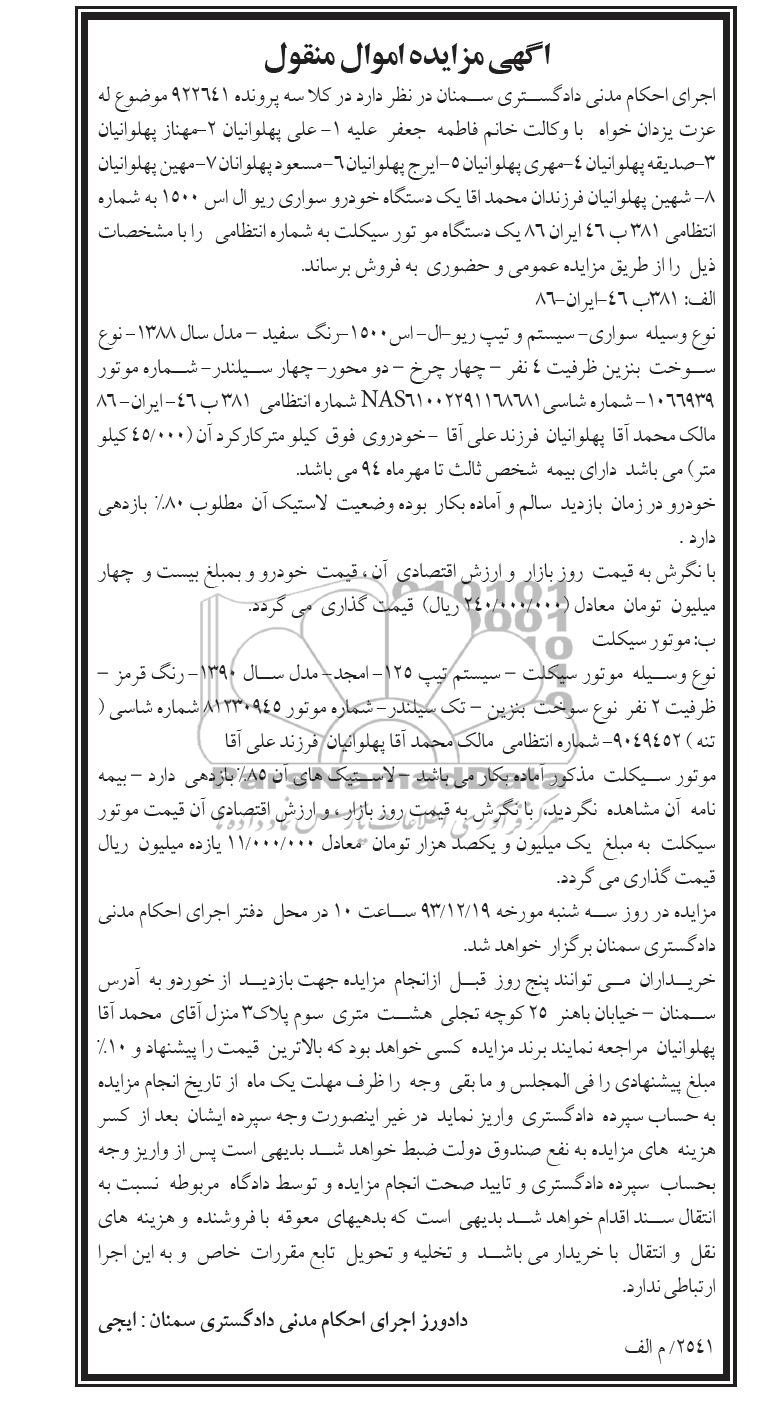 اگهی مزایده اموال منقول
اجرای احکام مدنی دادگستری سمنان در نظر دارد در کلاسه پرونده ۹۲۲۶۴۱ موضوع له
عزت یزدان خواه با وکالت خانم فاطمه جعفر علیه ۱- علی پهلوانیان ۲-مهناز پهلوانیان
۳-صدیقه پهلوانیان ٤-مهری پهلوانیان ٥-ایرج پهلوانیان ٦-مسعود پهلوانان ۷-مهین پهلوانیان
۸- شهین پهلوانیان فرزندان محمد اقا یک دستگاه خودرو سواری ریو ال اس ۱٥۰۰ به شماره
انتظامی ۳۸۱ ب ٤٦ ایران ۸٦ یک دستگاه مو تور سیکلت به شماره انتظامی را با مشخصات
ذیل را از طریق مزایده عمومی و حضوری به فروش برساند.
الف: ۳۸۱ب ٤٦-ایران-۸٦
نوع وسیله سواری- سیستم و تیپ ریو-ال- اس۱٥۰۰-رنگ سفید – مدل سال ۱۳۸۸- نوع
سوخت بنزین ظرفیت ٤ نفر – چهار چرخ – دو محور- چهار سیلندر- شماره موتور
۱۰٦٦۹۳۹- شماره شاسی NAS٦۱۰۰۲۲۹۱۱٦۸٦۸۱ شماره انتظامی ۳۸۱ ب ٤٦- ایران- ۸٦
مالک محمد آقا پهلوانیان فرزند علی آقا -خودروی فوق کیلو مترکارکرد آن (٤٥/۰۰۰ کیلو
متر) می باشد دارای بیمه شخص ثالث تا مهرماه ۹٤ می باشد.
خودرو در زمان بازدید سالم و آماده بکار بوده وضعیت لاستیک آن مطلوب ۸۰٪ بازدهی
دارد .
با نگرش به قیمت روز بازار و ارزش اقتصادی آن ، قیمت خودرو و بمبلغ بیست و چهار
میلیون تومان معادل (۲٤۰/۰۰۰/۰۰۰ ریال) قیمت گذاری می گردد.
ب: موتور سیکلت
نوع وسیله موتور سیکلت – سیستم تیپ ۱۲٥- امجد- مدل سال ۱۳۹۰- رنگ قرمز –
ظرفیت ۲ نفر نوع سوخت بنزین – تک سیلندر- شماره موتور ۸۱۲۳۰۹٤٥ شماره شاسی (
تنه ) ۹۰٤۹٤٥۲- شماره انتظامی مالک محمد آقا پهلوانیان فرزند علی آقا
موتور سیکلت مذکور آماده بکار می باشد – لاستیک های آن ۸٥٪ بازدهی دارد – بیمه
نامه آن مشاهده نگردید، با نگرش به قیمت روز بازار ، و ارزش اقتصادی آن قیمت موتور
سیکلت به مبلغ یک میلیون و یکصد هزار تومان معادل ۱۱/۰۰۰/۰۰۰ یازده میلیون ریال
قیمت گذاری می گردد.
مزایده در روز سه شنبه مورخه ۹۳/۱۲/۱۹ ساعت ۱۰ در محل دفتر اجرای احکام مدنی
دادگستری سمنان برگزار خواهد شد.
خریداران می توانند پنج روز قبل ازانجام مزایده جهت بازدید از خوردو به آدرس
سمنان – خیابان باهنر ۲٥ کوچه تجلی هشت متری سوم پلاک۳ منزل آقای محمد آقا
پهلوانیان مراجعه نمایند برند مزایده کسی خواهد بود که بالاترین قیمت را پیشنهاد و ۱۰٪
مبلغ پیشنهادی را فی المجلس و ما بقی وجه را ظرف مهلت یک ماه از تاریخ انجام مزایده
به حساب سپرده دادگستری واریز نماید در غیر اینصورت وجه سپرده ایشان بعد از کسر
هزینه های مزایده به نفع صندوق دولت ضبط خواهد شد بدیهی است پس از واریز وجه
بحساب سپرده دادگستری و تایید صحت انجام مزایده و توسط دادگاه مربوطه نسبت به
انتقال سند اقدام خواهد شد بدیهی است که بدهیهای معوقه با فروشنده و هزینه های
نقل و انتقال با خریدار می باشد و تخلیه و تحویل تابع مقررات خاص و به این اجرا
ارتباطی ندارد.
دادورز اجرای احکام مدنی دادگستری سمنان : ایجی
۲٥٤۱/ م الف
ParsNamadData